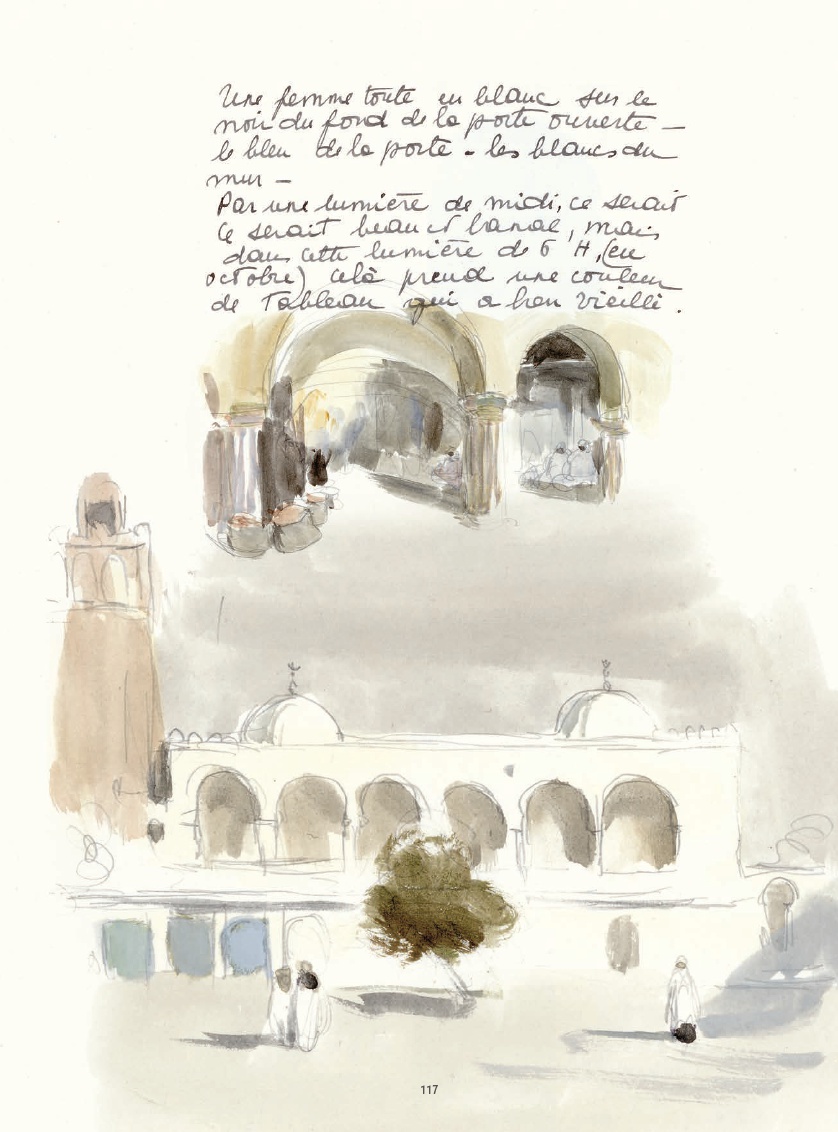 Une femme toute en blanc sur le
noir du fond de la porte ouverte —
le bleu de la porte - les blancs du
mur —
Par une lumière de midi, ce serait
ce serait beau et banal, mais
dans cette lumière de 6 H, (en
octobre) celà prend une couleur
de Tableau qui a bien vieilli.
117